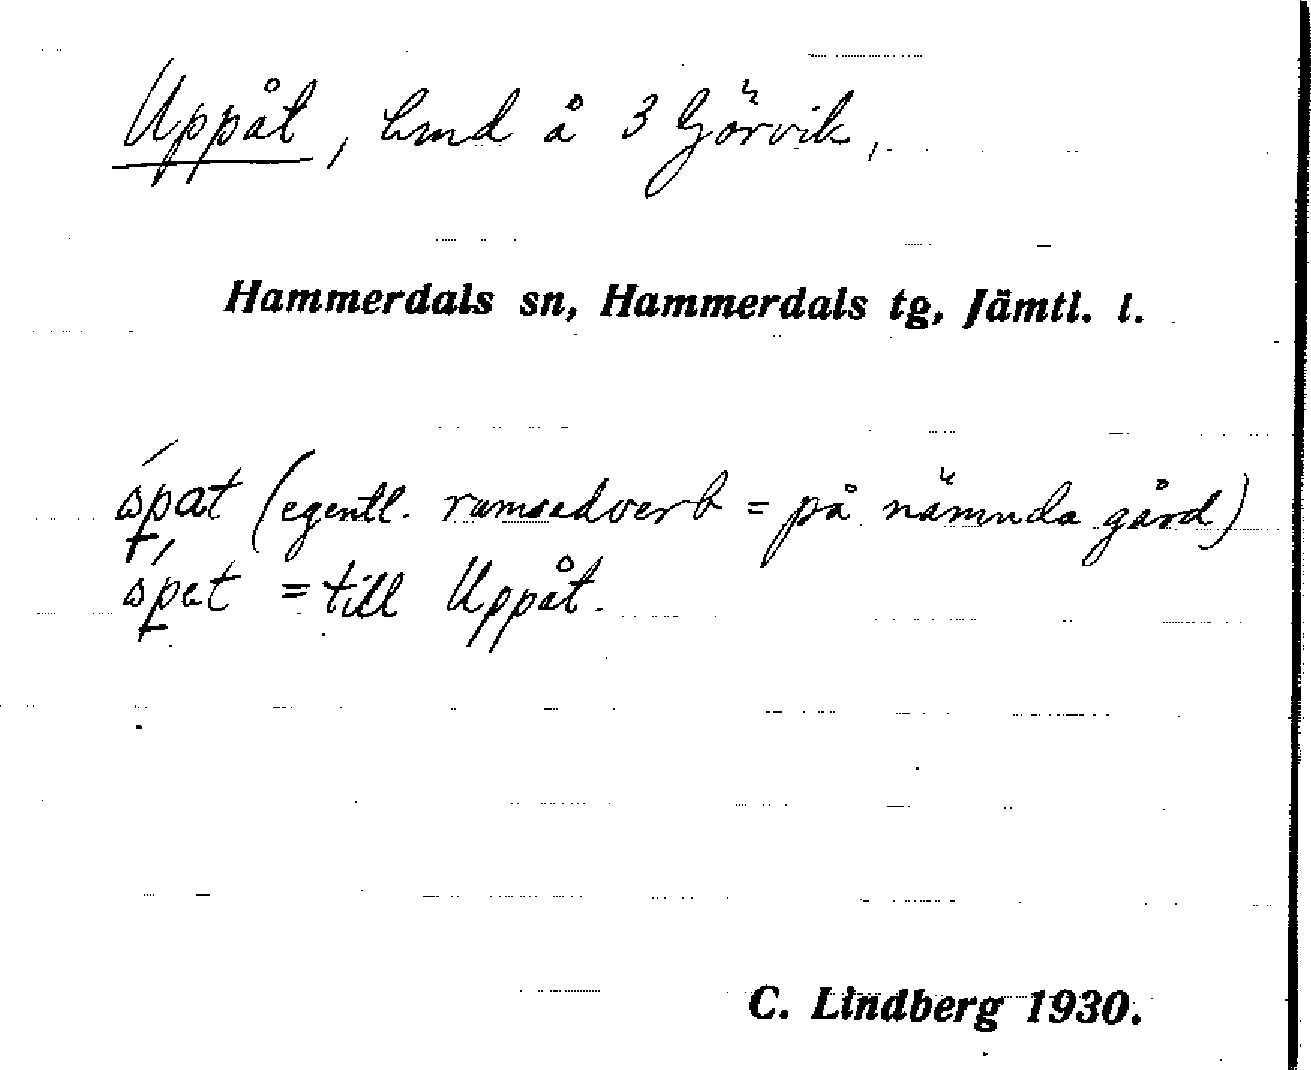 Uppåt, hmd å 3 Görvik,
Hammerdals sn, Hammerdals tg, Jämtl. l.
(egentl. rumsadverb = på nämnda gård)
= till Uppåt.
C. Lindberg 1930.